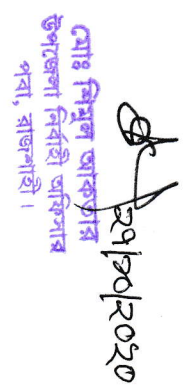 ২৭/১০/২০২০
মোঃ শিমুল আকতার
উপজেলা নির্বাহী অফিসার
পবা, রাজশাহী।